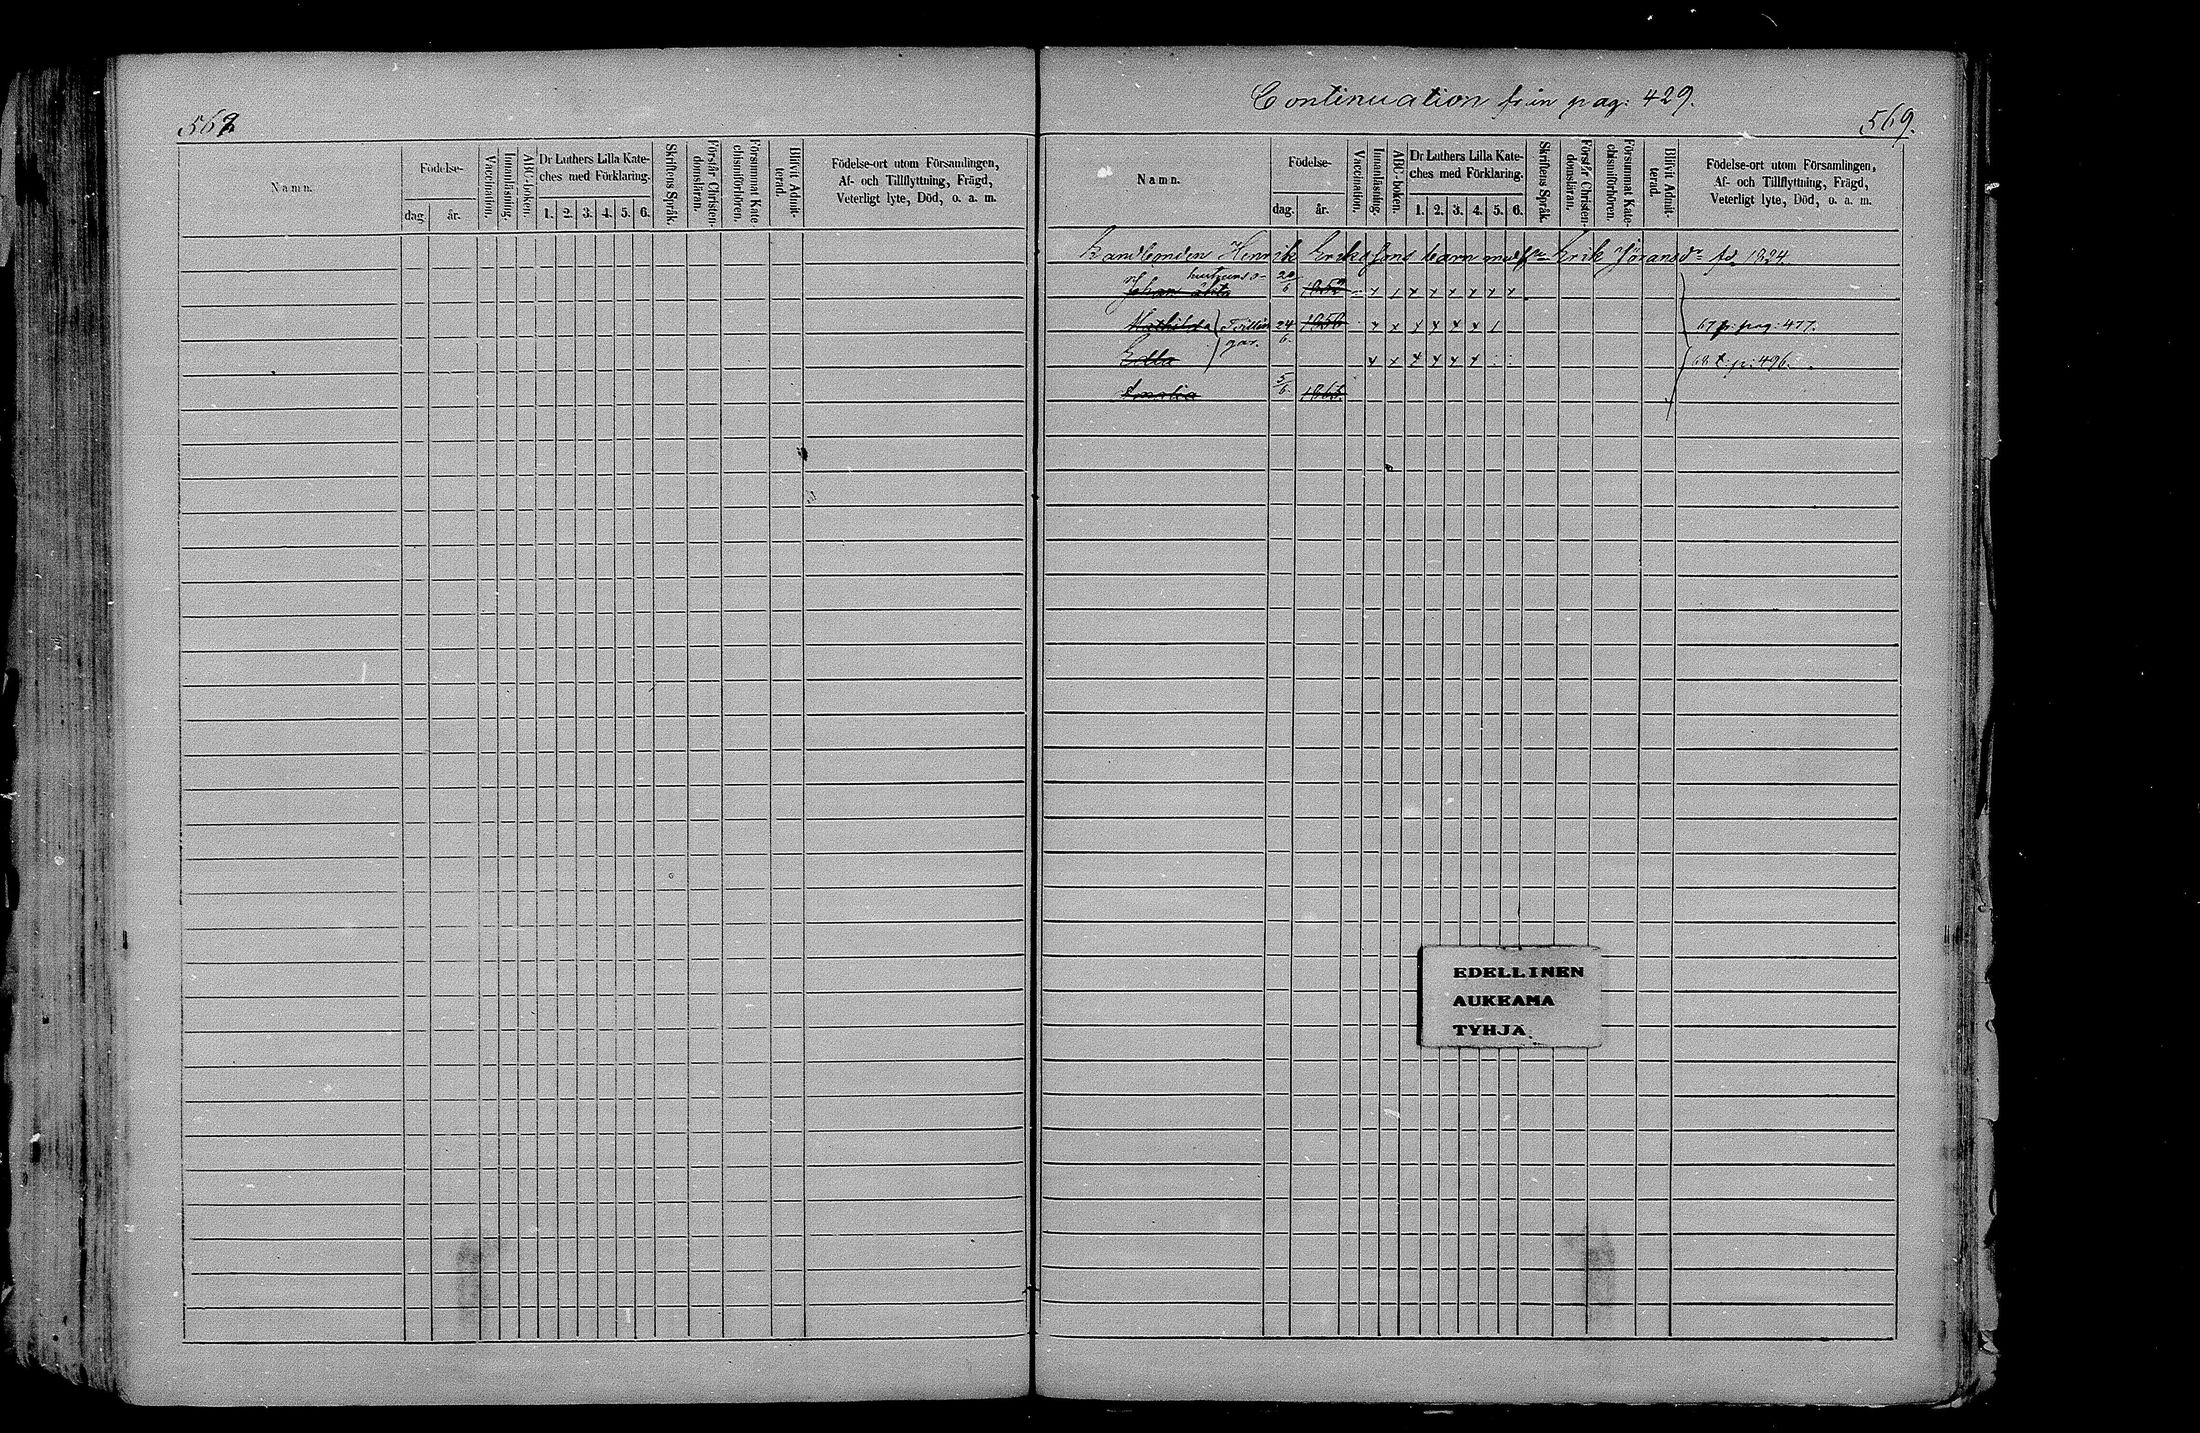 568
Namn.
Födelse-
dag.
år.
Vaccination.
Innanläsning.
ABC-boken.
Dr Luthers Lilla Kate-
ches med Förklaring.
1. 2. 3. 4. 5. 6.
Skriftens Språk.
Förstår Christen-
domsläran.
Försummat Kate-
chismiförhören.
Blifvit Admit-
terad.
Födelse-ort utom Församlingen,
Af- och Tillflyttning, Frägd,
Veterligt lyte, Död, o. a. m.
Continuation från pag: 429.
569.
Namn.
Födelse-
dag.
år.
Vaccination.
Innanläsning.
ABC-boken.
Dr Luthers Lilla Kate-
ches med Förklaring.
1. 2. 3. 4. 5. 6.
Skriftens Språk.
Förstår Christen-
domsläran.
Försummat Kate-
chismiförhören.
Blifvit Admit-
terad.
Födelse-ort utom Församlingen,
Af- och Tillflyttning, Frägd,
Veterligt lyte, Död, o. a. m.
Bandbonden Henrik Erikssons barn med Erik Göransdr fd 1824.
Johan 20/6 1852 x x x x x x x
Mathilda Tvillin 24/6 1856 x x x x x x 67 p: pag: 477.
gar.
Edla x x x x x x 68 t. p: 496.
Amalia 5/6 1865.
EDELLINEN
AUKEAMA
TYHJÄ.